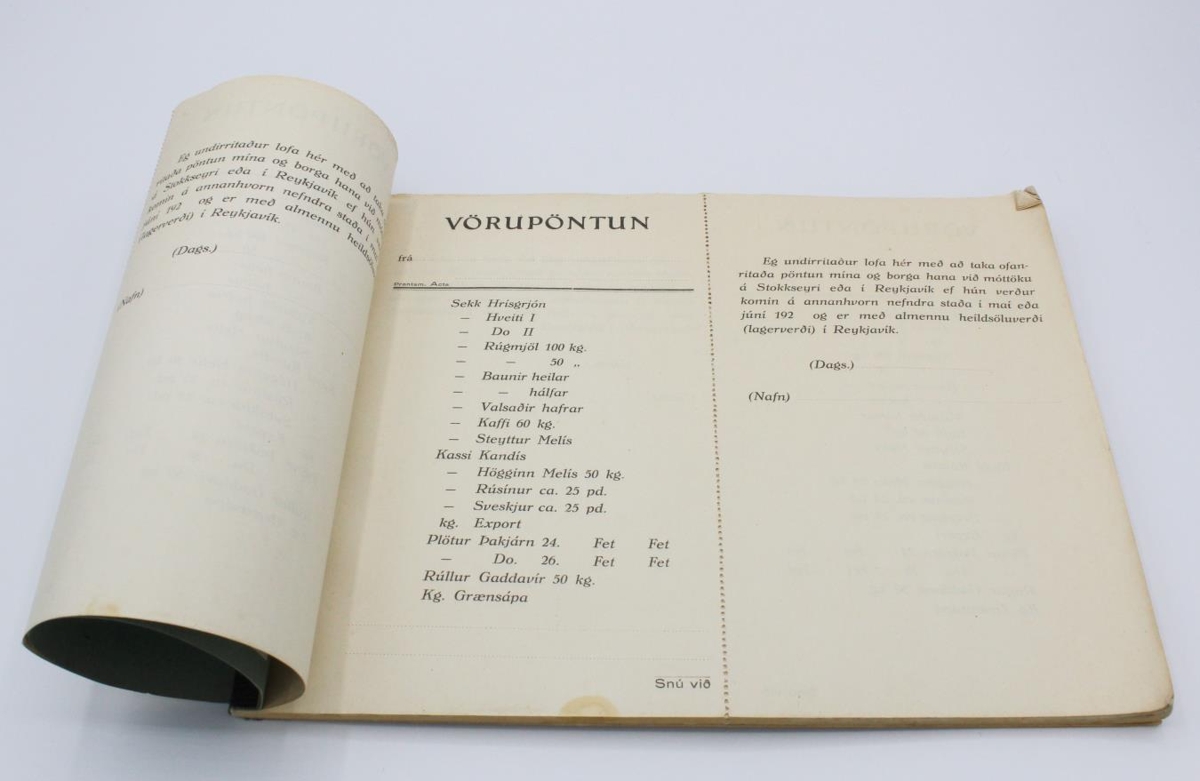 Eg undirritaður lofa hér með að taka
pöntun mína og borga hana við
á Stokkseyri eða í Reykjavík ef hún
komin á annanhvorn nefndra staða í
júní 192 og er með almennu heildsölu
(lagerverði) í Reykjavík.
(Dags.)
(Nafn)
VÖRUPÖNTUN
frá
Prentsm. Acta
Sekk Hrísgrjón
— Hveiti I
— Do II
— Rúgmjöl 100 kg.
— — 50 „
— Baunir heilar
— — hálfar
— Valsaðir hafrar
— Kaffi 60 kg.
— Steyttur Melís
Kassi Kandís
— Högginn Melís 50 kg.
— Rúsínur ca. 25 pd.
— Sveskjur ca. 25 pd.
kg. Export
Plötur Þakjárn 24. Fet Fet
— Do. 26. Fet Fet
Rúllur Gaddavír 50 kg.
Kg. Grænsápa
Snú við
Eg undirritaður lofa hér með að taka ofan-
ritaða pöntun mína og borga hana við móttöku
á Stokkseyri eða í Reykjavík ef hún verður
komin á annanhvorn nefndra staða í maí eða
júní 192 og er með almennu heildsöluverði
(lagerverði) í Reykjavík.
(Dags.)
(Nafn)